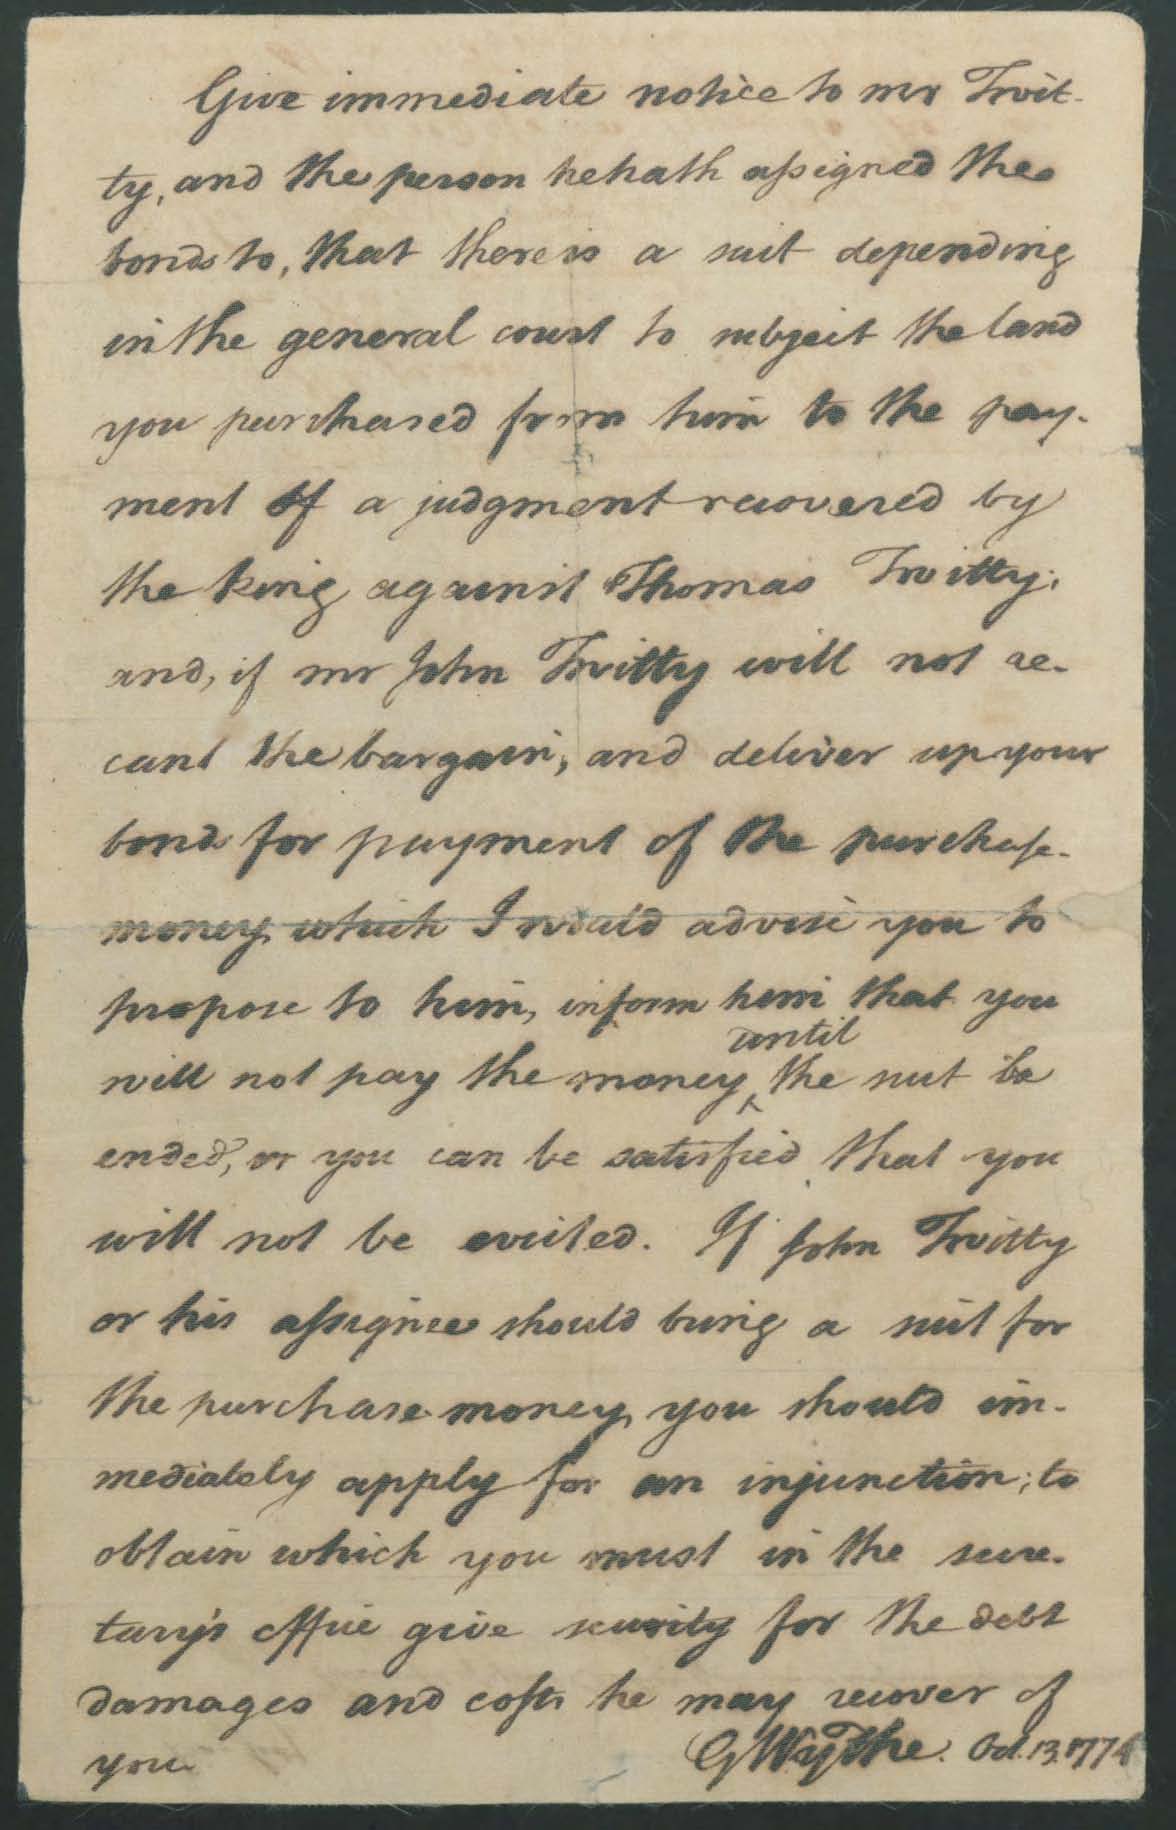 Give immediate notice to mr Twit-
ty, and the person he hath assigned the
bonds to, that there is a suit depending
in the general court to subject the land
you purchased from him to the pay-
ment of a judgment recovered by
the king against Thomas Twitty;
and, if mr John Twitty will not re-
cant the bargain, and deliver up your
bonds for payment of the purchase-
money, which I would advise you to
propose to him, inform him that you
until
will not pay the money ‸ the suit be
ended, or you can be satisfied that you
will not be evicted. If John Twitty
or his assignee should bring a suit for
the purchase money, you should im-
mediately apply for an injunction; to
obtain which you must in the secre-
tary's office give security for the debt
damages and costs he may recover of
you. G Wythe. Oct. 13. 1774